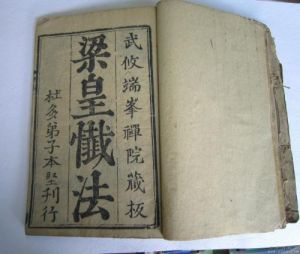 武攸端峯禪院藏板
梁皇懺法
杜弟子本堅刊行